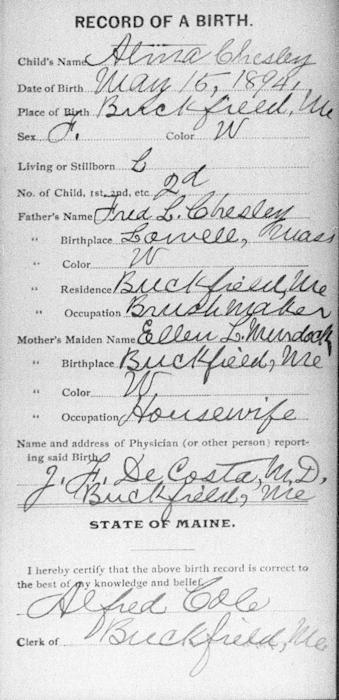 RECORD OF A BIRTH.
Child's Name Alma Chesley
Date of Birth May 15, 1894,
Place of Birth Buckfield, Me
Sex F. Color W
Living or Stillborn L
No. of Child, 1st, 2nd, etc. 2d
Father's Name Fred L. Chesley
" Birthplace Lowell, Mass
" Color W
" Residence Buckfield, Me
" Occupation Brushmaker
Mother's Maiden Name Ellen L. Murdock
" Birthplace Buckfield, Me
" Color W
" Occupation Housewife
Name and address of Physician (or other person) report-
ing said Birth,
J. F. De Costa, M.D.
Buckfield, Me
STATE OF MAINE.
I hereby certify that the above birth record is correct to
the best of my knowledge and belief.
Alfred Cole
Clerk of Buckfield, Me